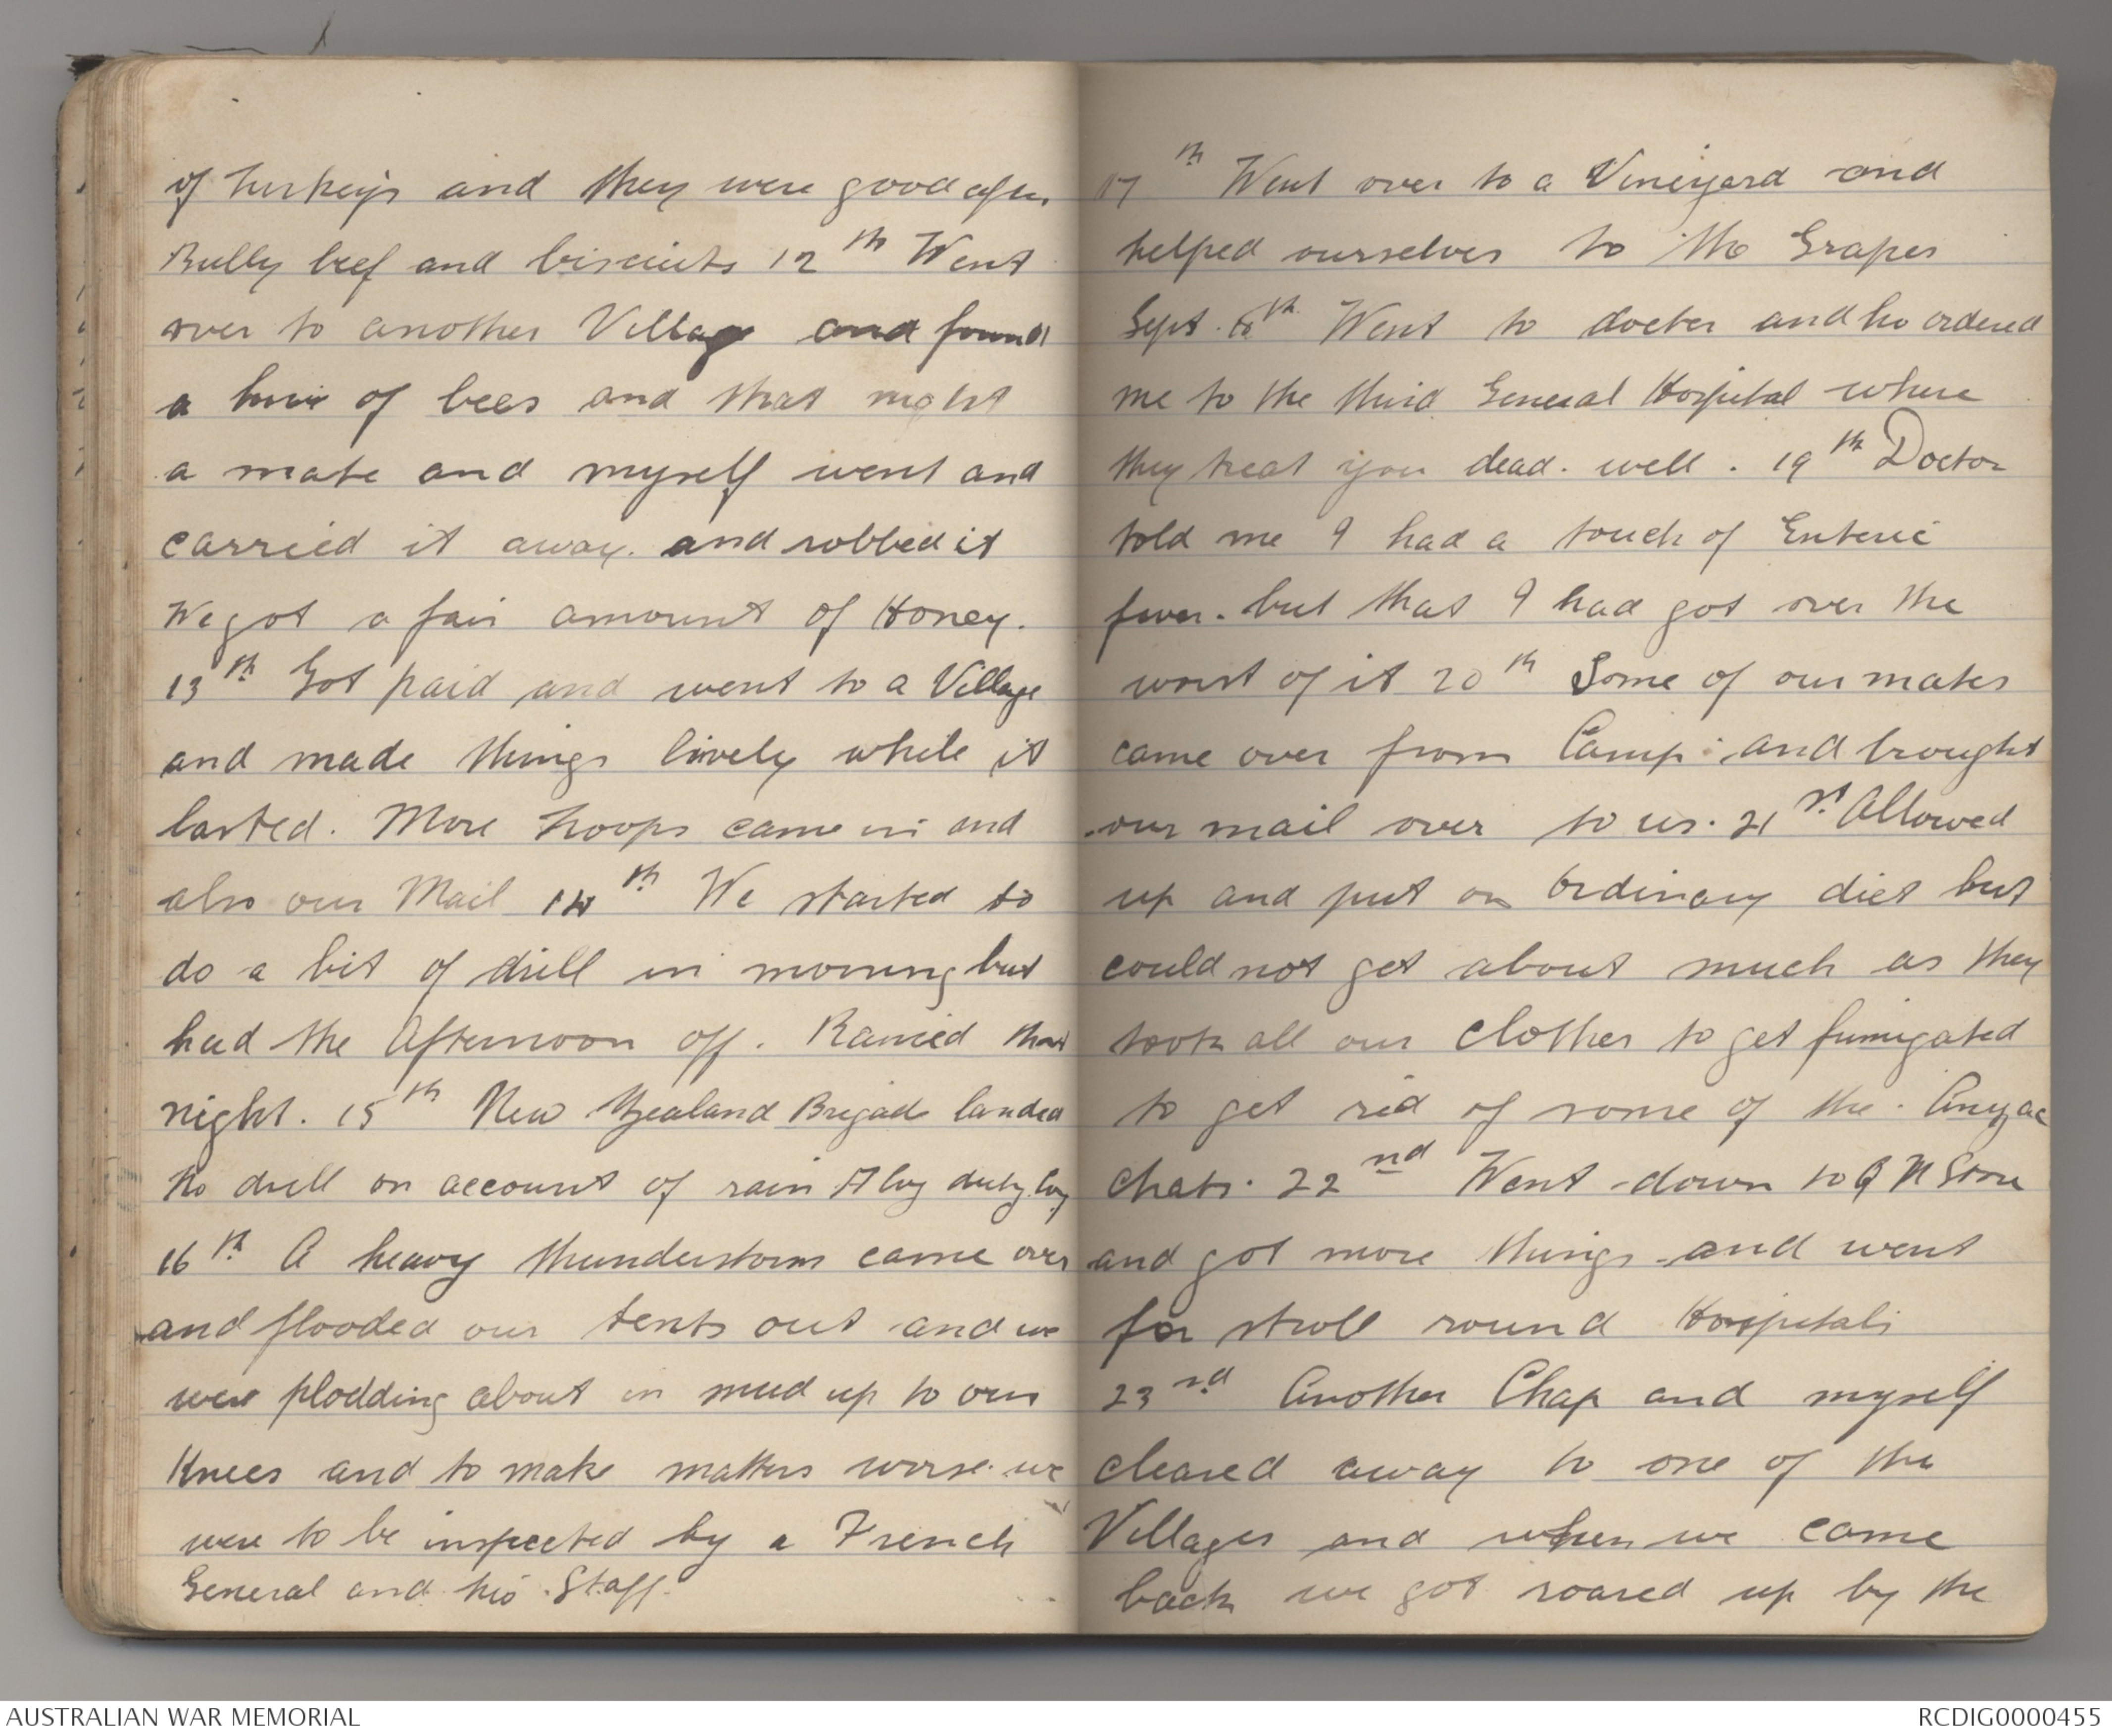 of turkeys and they were good after
Bully beef and biscuits 12th Went
over to another Village and found
a hive of bees and that night
a mate and myself went and
carried it away. and robbed it
We got a fair amount of Honey.
13th Got paid and went to a Village
and made things lively while it
lasted. More troops came in and
also our Mail 14th We started to
do a bit of drill in morning but
had the Afternoon off. Rained that
night. 15th New Zealand Brigade landed
No drill on account of rain
16th A heavy thunderstorm came over
and flooded our tents out and we
were plodding about in mud up to our
Knees and to make matters worse we
were to be inspected by a French
General and his Staff.
17th Went over to a Vineyard and
helped ourselves to the Grapes
Sept. Went to docter and he ordered
me to the third General Hospital where
they treat you dead. well. 19th Doctor
told me I had a touch of Enteric
fever. but that I had got over the
worst of it 20th Some of our mates
came over from Camp and brought
our mail over to us. 21st Allowed
up and put on Ordinary diet but
could not get about much as they
took all our clothes to get fumigated
to get rid of some of the. Anzac
Chats. 22nd Went down to Q M Store
and got more things and went
for stroll round Hospitals
23rd Another Chap and myself
cleared away to one of the
Villages and when we came
back we got roared up by the
AUSTRALIAN WAR MEMORIAL
RCDIG0000455